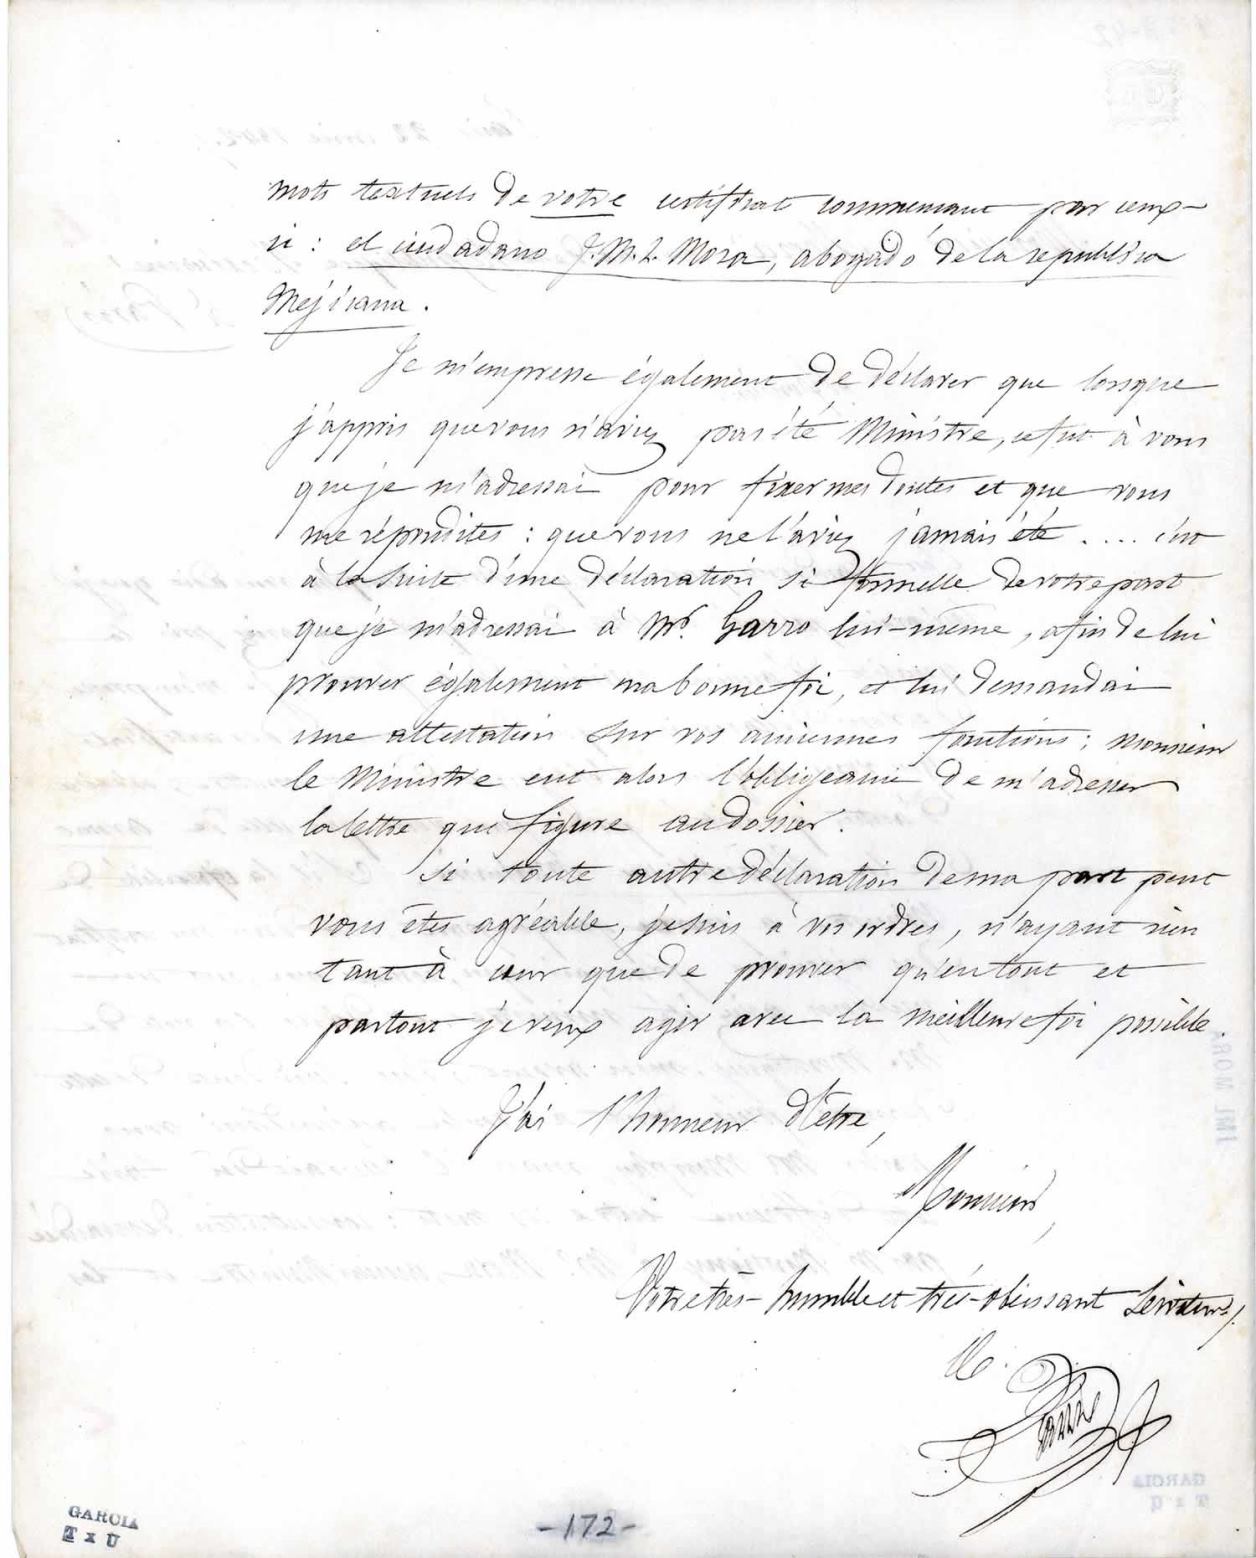 mots textuels de votre certificat commencant par ceux-
ci : el ciudadano J. M. L. Mora, abogado de la republica
Mejicana.
Je m'empresse également de déclarer que lorsque
j'appris que vous n'aviez pas été Ministre, ce fut à vous
que je m'adressai pour fixer mes doutes et que vous
me répondites : que vous ne l'aviez jamais été .... c'est
à la suite d'une déclaration si formelle de votre part
que je m'adressai à Mr. Garro lui-même, afin de lui
prouver également ma bonne foi, et lui demandai
une attestation sur vos anciennes fonctions ; monsieur
le Ministre eut alors l'obligeance de m'adresser
la lettre qui figure au dossier.
Si toute autre déclaration de ma part peut
vous êtes agréable, je suis à vos ordres, n'ayant rien
tant à cœur que de prouver qu'en tout et
partout je veux agir avec la meilleure foi possible.
J'ai l'honneur d'être,
Monsieur,
Votre très-humble et très-obéissant Serviteur.
GARCIA
T x U
-172-